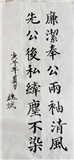 廉潔奉公兩袖清風
先公後私纖塵不染